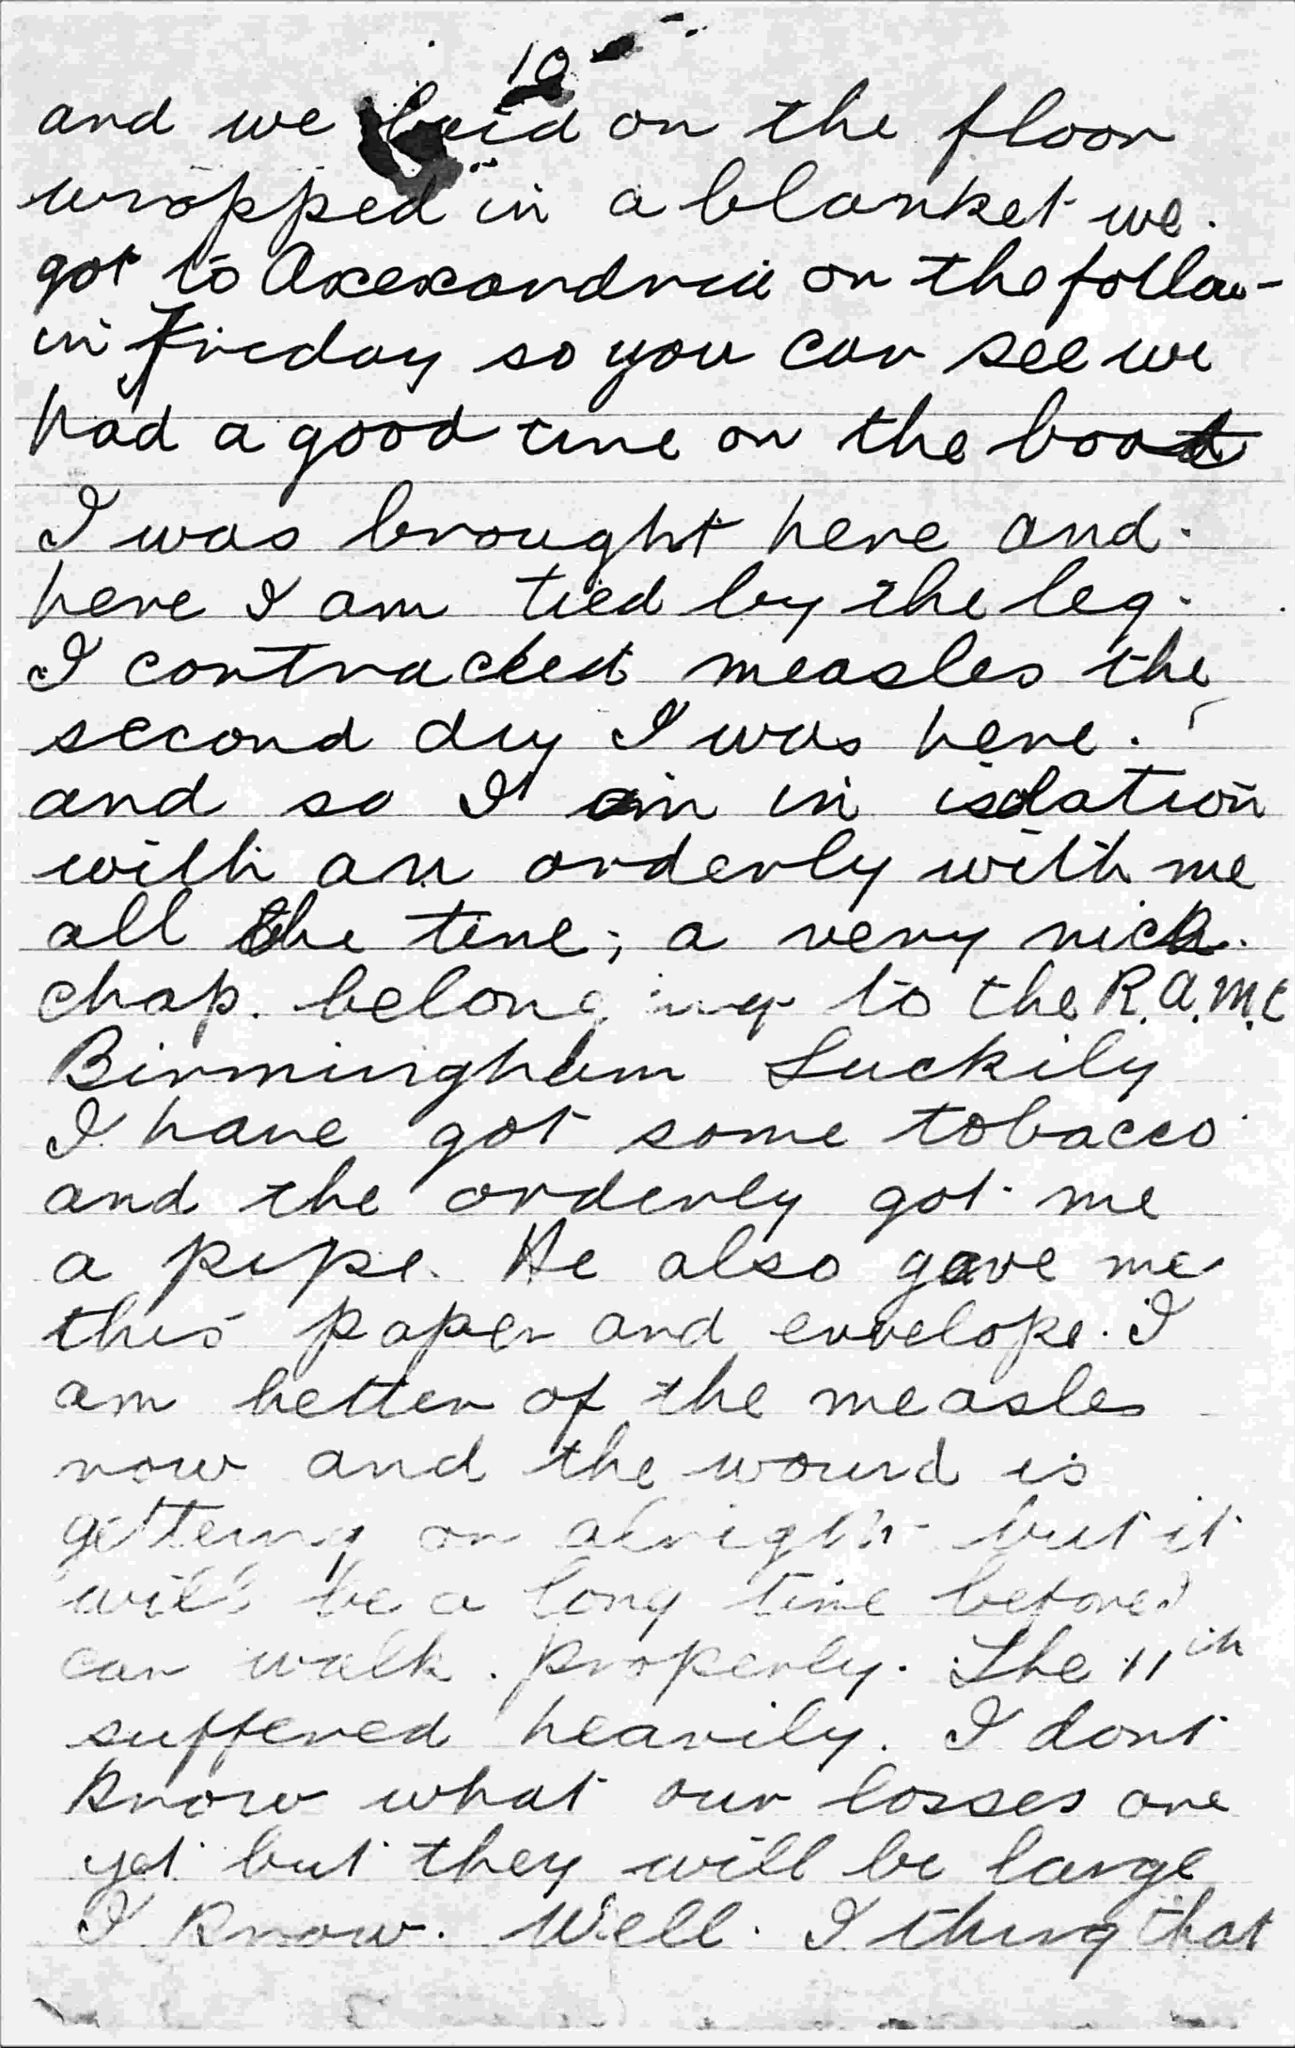 10
and we laid on the floor
wropped in a blanket we.
got to Axexandria on the follow-
in Friday so you can see we
had a good time on the boat
I was brought here and.
here I am tied by the leg.
I contracted measles the
second day I was here.
and so I am in isolation
with an orderly with me
all the time; a very nice.
chap. belonging to the R.A.M.C
Birmingham Luckily
I have got some tobacco
and the orderly got me
a pipe. He also gave me
this paper and envelope. I
am better of the measles
now and the wound is
getteing on alright but it
will be a long time before I
can walk. properly. The 11th
suffered heavily. I dont
know what our losses are
yet but they will be large
I know. Well. I thing that